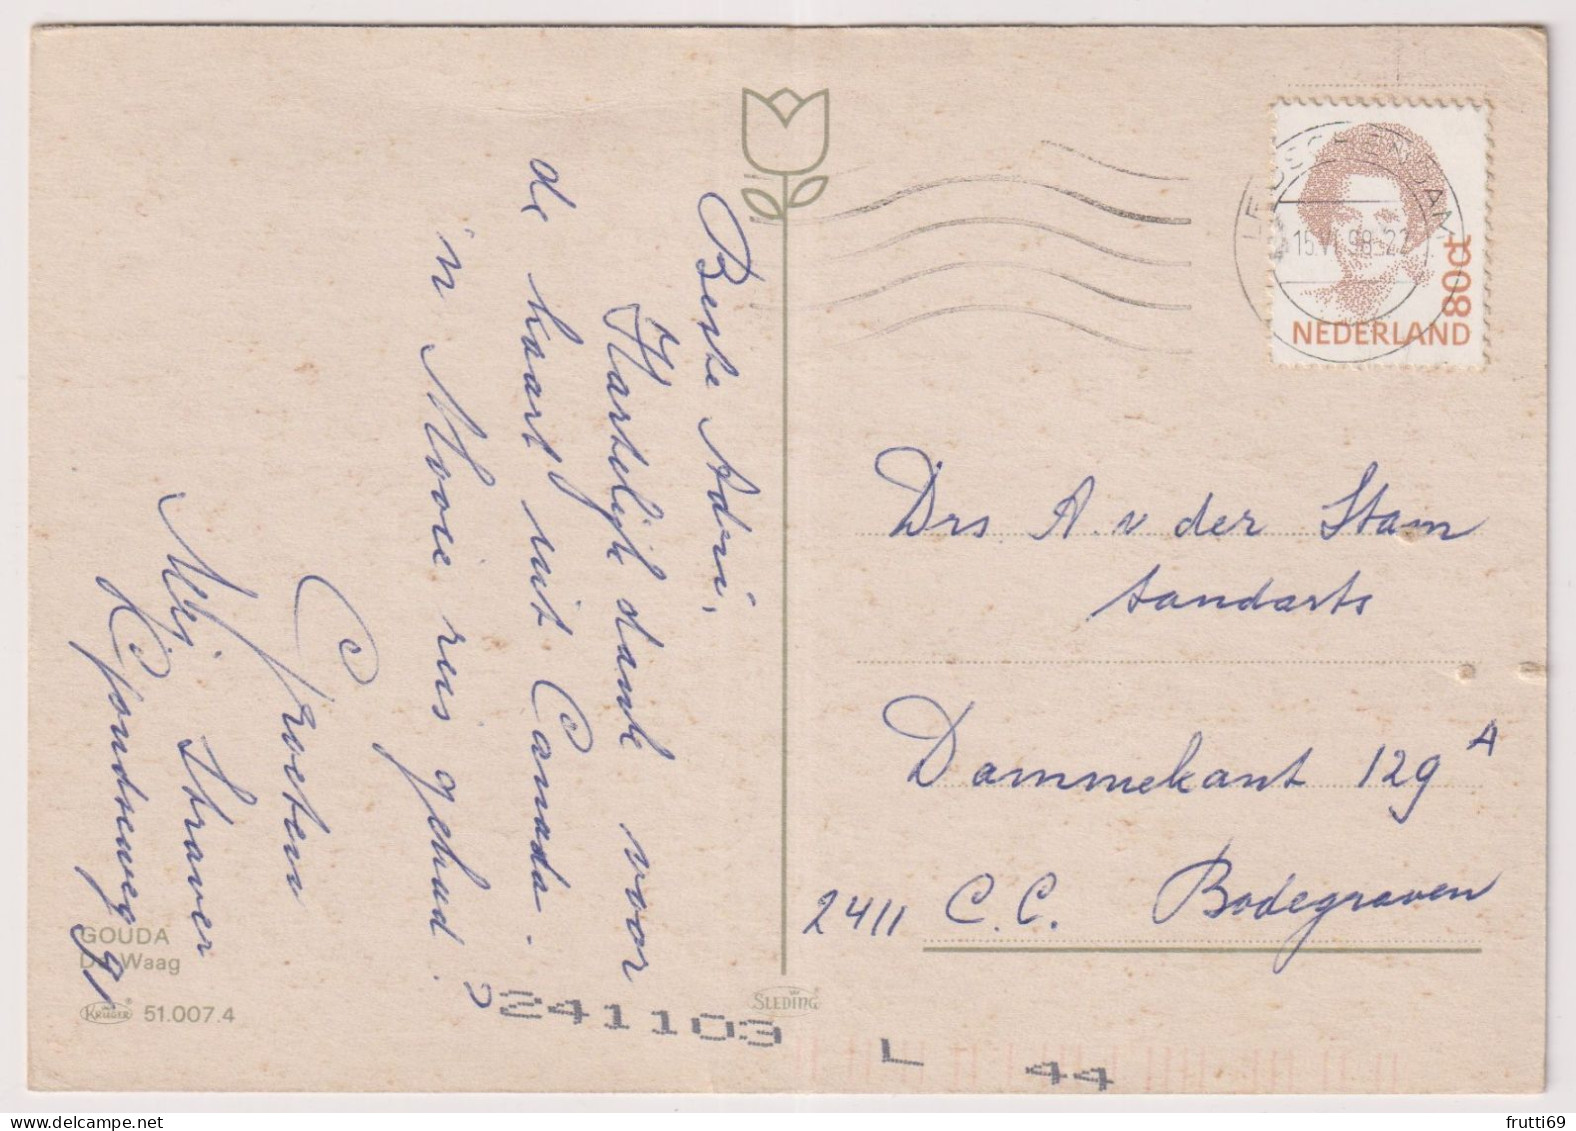 Beste Adri,
Hartelijk dank voor
de kaart uit Canada.
in Mooie reis gehad.
Groeten
Mej. Straver
Gouda
De Waag
Krüger 51.007.4
Sleding
LEIDSCHENDAM
15.VI.98-22
80ct
NEDERLAND
Drs. A. v der Stam
tandarts
Dammekant 129 A
2411 C.C. Bodegraven
241103
L 44
delcampe.net
frutti69